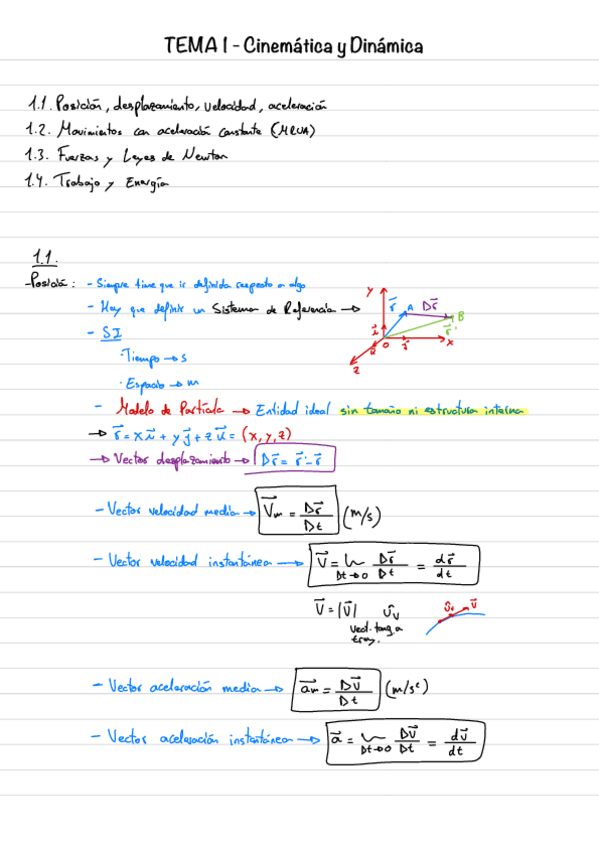 TEMA 1 - Cinemática y Dinámica
1.1. Posición, desplazamiento, velocidad, aceleración
1.2. Movimientos con aceleración constante (MRUA)
1.3. Fuerzas y Leyes de Newton
1.4. Trabajo y Energía
1.1.
-Posición: - Siempre tiene que ir definida respecto a algo
- Hay que definir un Sistema de Referencia →
y r⃗ A Δr⃗ B r⃗' O x z
- SI
· Tiempo → s
· Espacio → m
- Modelo de Partícula → Entidad ideal sin tamaño ni estructura interna
→ r⃗ = x i⃗ + y j⃗ + z u⃗ = (x, y, z)
→ Vector desplazamiento → Δr⃗ = r⃗' - r⃗
- Vector velocidad media → V⃗m = Δr⃗ / Δt (m/s)
- Vector velocidad instantánea → V⃗ = lim Δt→0 Δr⃗ / Δt = dr⃗ / dt
V⃗ = |V⃗| ûv
vect. tang a
tray.
ûv v⃗
- Vector aceleración media → a⃗m = Δv⃗ / Δt (m/s²)
- Vector aceleración instantánea → a⃗ = lim Δt→0 Δv⃗ / Δt = dv⃗ / dt